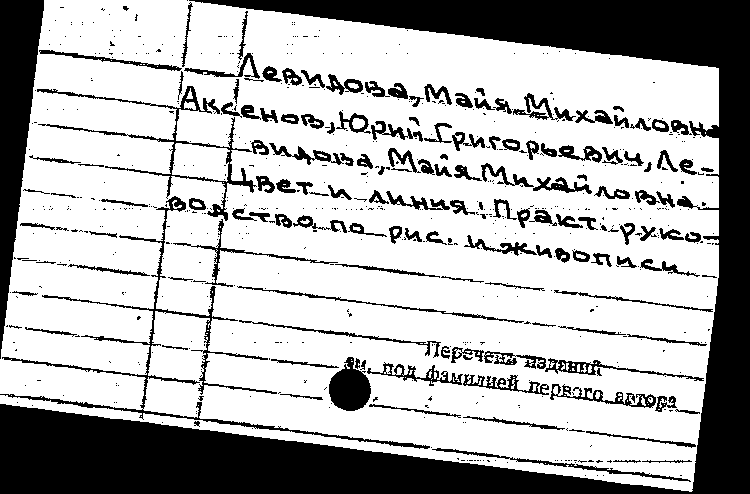 Левидова, Майя Михайловна
Аксенов, Юрий Григорьевич, Ле-
видова, Майя Михайловна.
Цвет и линия: Практ. руко-
водство по рис. и живописи.
Перечень изданий
см. под фамилией первого автора